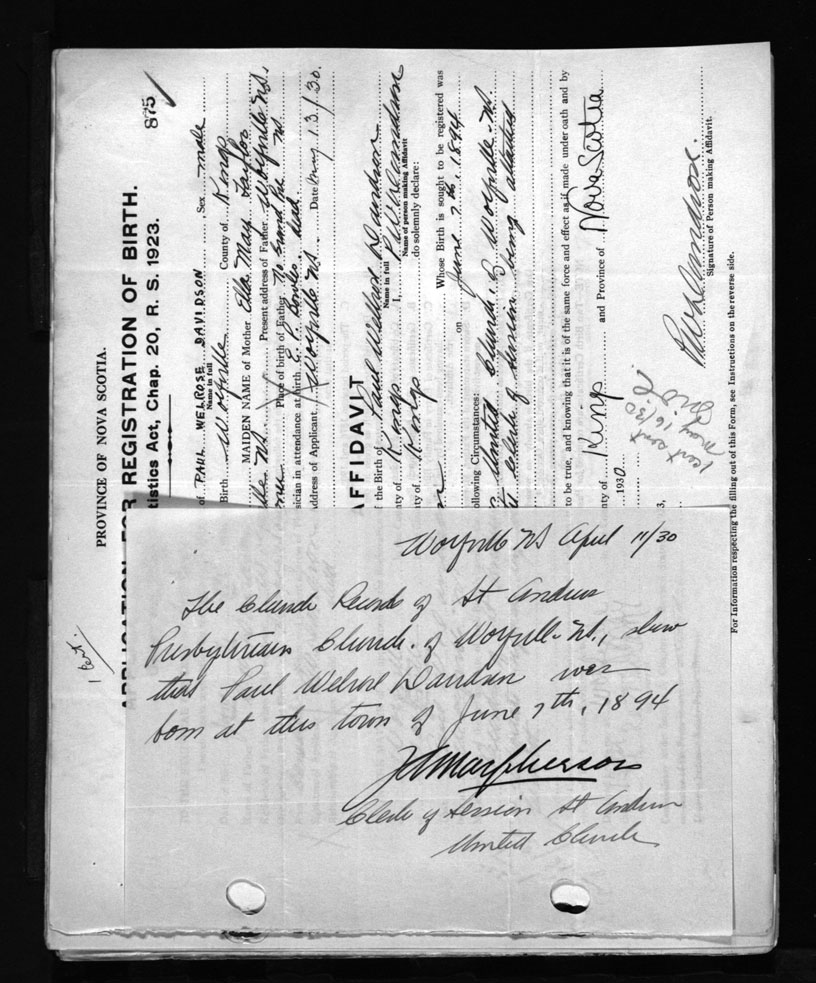 PROVINCE OF NOVA SCOTIA.
875
FOR REGISTRATION OF BIRTH.
tistics Act, Chap. 20, R. S. 1923.
of PAUL WELROSE DAVIDSON Sex male
Name in full
Birth Wolfville County of Kings
MAIDEN NAME of Mother Ella May Taylor
N.S. Present address of Father Wolfville N.S.
Place of birth of Father Grand Pre N.S.
sician in attendance at birth dead
Address of Applicant Wolfville N.S. Date May 13/30.
AFFIDAVIT
f the Birth of Paul Welrose Davidson
Name in full
nty of Kings I, P. W. Davidson
Name of person making Affidavit
ty of Kings do solemnly declare:
Whose Birth is sought to be registered was
on June 7th, 1894
ollowing Circumstances:
United Church of Wolfville N.S.
Clerk of Session being attached
to be true, and knowing that it is of the same force and effect as if made under oath and by
nty of Kings and Province of Nova Scotia
1930
P. W. Davidson.
Signature of Person making Affidavit.
1 cert sent
May 16/30
For Information respecting the filling out of this Form, see Instructions on the reverse side.
1 cert.
Wolfville NS April 11/30
The Church Records of St Andrews
Presbyterian Church of Wolfville N.S., show
that Paul Welrose Davidson was
born at this town of June 7th, 1894
MacPherson
Clerk of Session St Andrews
United Church